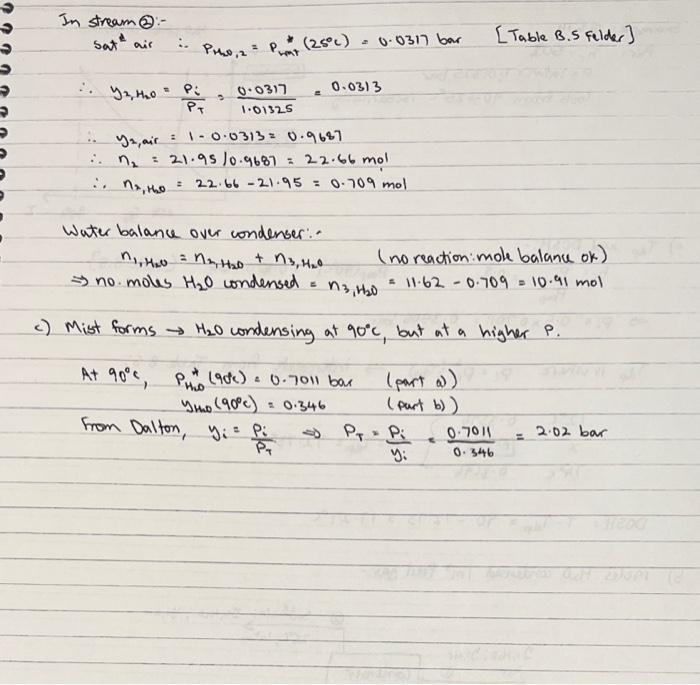 In stream ②:-
satᵈ air ∴ P_H₂O,2 = P*_wat (25°C) = 0.0317 bar [Table B.5 Felder]
∴ y₂,H₂O = Pi/P_T = 0.0317/1.01325 = 0.0313
∴ y₂,air = 1 - 0.0313 = 0.9687
∴ n₂ = 21.95/0.9687 = 22.66 mol
∴ n₂,H₂O = 22.66 - 21.95 = 0.709 mol
Water balance over condenser:-
n₁,H₂O = n₂,H₂O + n₃,H₂O (no reaction: mole balance ok)
⇒ no. moles H₂O condensed = n₃,H₂O = 11.62 - 0.709 = 10.91 mol
c) Mist forms → H₂O condensing at 90°C, but at a higher P.
At 90°C, P*_H₂O (90°C) = 0.7011 bar (part a))
y_H₂O (90°C) = 0.346 (part b))
From Dalton, yi = Pi/P_T ⇒ P_T = Pi/yi = 0.7011/0.346 = 2.02 bar